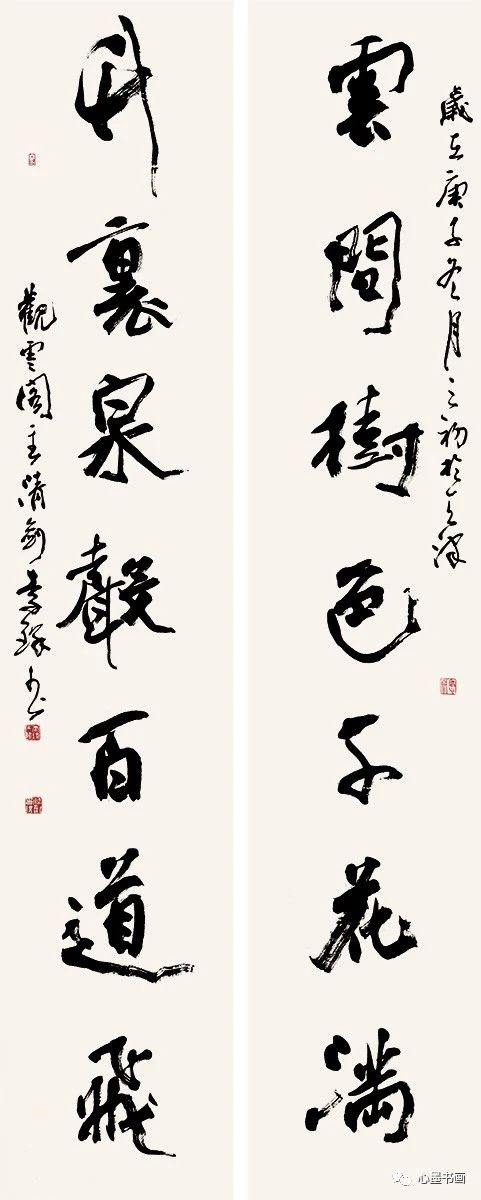 歲在庚子冬月之初於天津
雲間樹色千花滿
竹裏泉聲百道飛
觀雲閣主
心墨书画